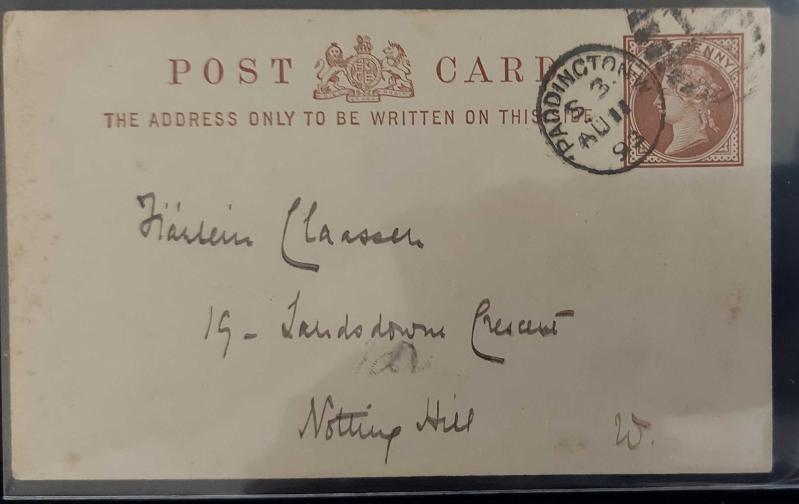 POST CARD
THE ADDRESS ONLY TO BE WRITTEN ON THIS SIDE
PADDINGTON·W
AU 11
Fräulein Claassen
19 - Landsdowne Crescent
Notting Hill W.